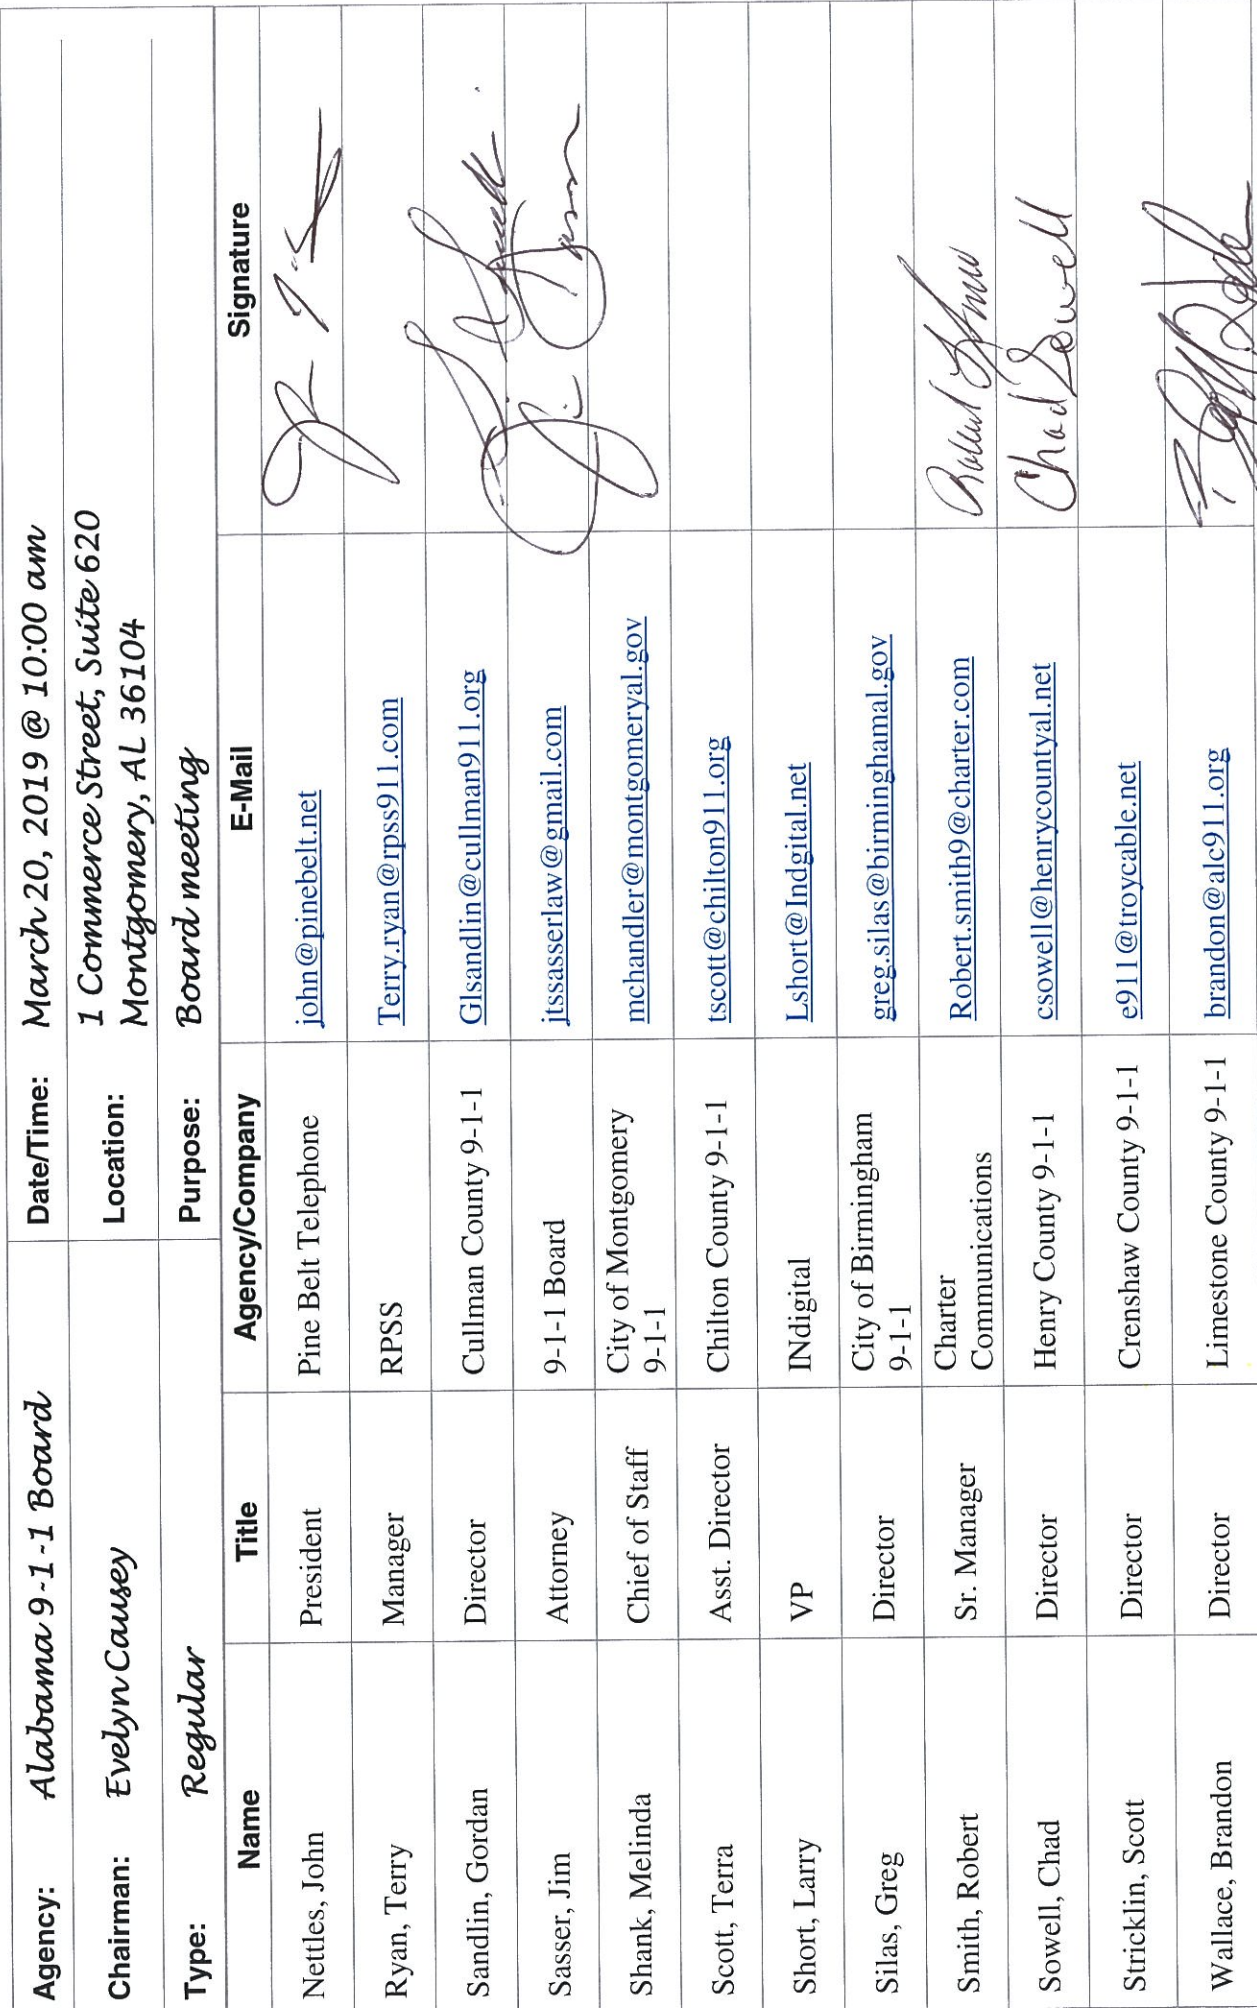 Agency: Alabama 9-1-1 Board Date/Time: March 20, 2019 @ 10:00 am
Chairman: Evelyn Causey Location: 1 Commerce Street, Suite 620
Montgomery, AL 36104
Type: Regular Purpose: Board meeting
Name Title Agency/Company E-Mail Signature
Nettles, John President Pine Belt Telephone john@pinebelt.net
Ryan, Terry Manager RPSS Terry.ryan@rpss911.com
Sandlin, Gordan Director Cullman County 9-1-1 Glsandlin@cullman911.org
Sasser, Jim Attorney 9-1-1 Board jtssasserlaw@gmail.com
Shank, Melinda Chief of Staff City of Montgomery
9-1-1 mchandler@montgomeryal.gov
Scott, Terra Asst. Director Chilton County 9-1-1 tscott@chilton911.org
Short, Larry VP INdigital Lshort@Indgital.net
Silas, Greg Director City of Birmingham
9-1-1 greg.silas@birminghamal.gov
Smith, Robert Sr. Manager Charter
Communications Robert.smith9@charter.com
Sowell, Chad Director Henry County 9-1-1 csowell@henrycountyal.net Chad Sowell
Stricklin, Scott Director Crenshaw County 9-1-1 e911@troycable.net
Wallace, Brandon Director Limestone County 9-1-1 brandon@alc911.org